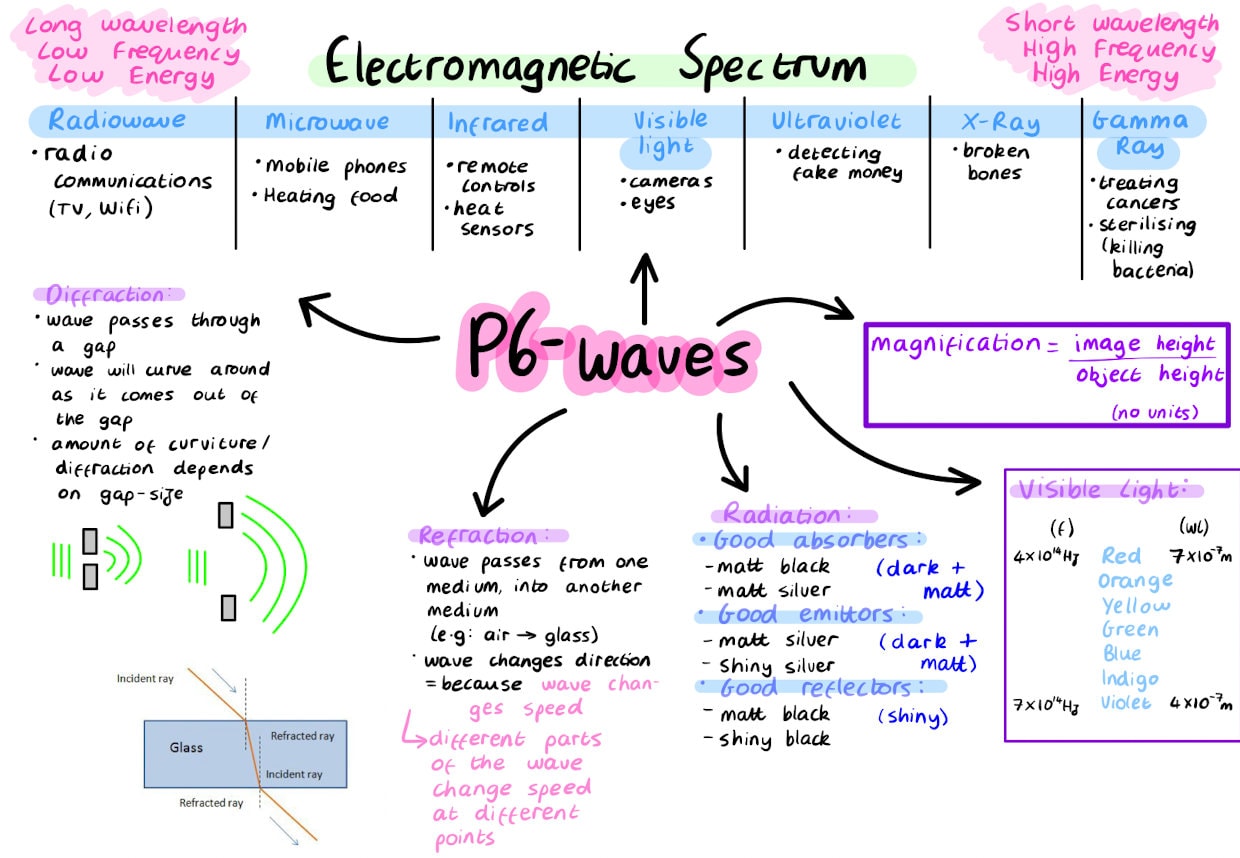 Long wavelength
Low Frequency
Low Energy
Electromagnetic Spectrum
Short wavelength
High Frequency
High Energy
Radiowave
• radio
communications
(TV, Wifi)
Microwave
• Mobile phones
• Heating food
Infrared
• remote
controls
• heat
sensors
Visible
light
• cameras
• eyes
Ultraviolet
• detecting
fake money
X-Ray
• broken
bones
Gamma
Ray
• treating
cancers
• sterilising
(killing
bacteria)
P6-waves
Diffraction:
• wave passes through
a gap
• wave will curve around
as it comes out of
the gap
• amount of curviture/
diffraction depends
on gap-size
magnification = image height
object height
(no units)
Refraction:
• wave passes from one
medium, into another
medium
(e.g: air → glass)
• wave changes direction
= because wave chan-
ges speed
↳ different parts
of the wave
change speed
at different
points
Incident ray
Glass
Refracted ray
Incident ray
Refracted ray
Radiation:
• Good absorbers:
- matt black (dark +
- matt silver matt)
• Good emittors:
- matt silver (dark +
- shiny silver matt)
• Good reflectors:
- matt black (shiny)
- shiny black
Visible Light:
(f) (wl)
4×10¹⁴Hz Red 7×10⁻⁷m
Orange
Yellow
Green
Blue
Indigo
7×10¹⁴Hz Violet 4×10⁻⁷m